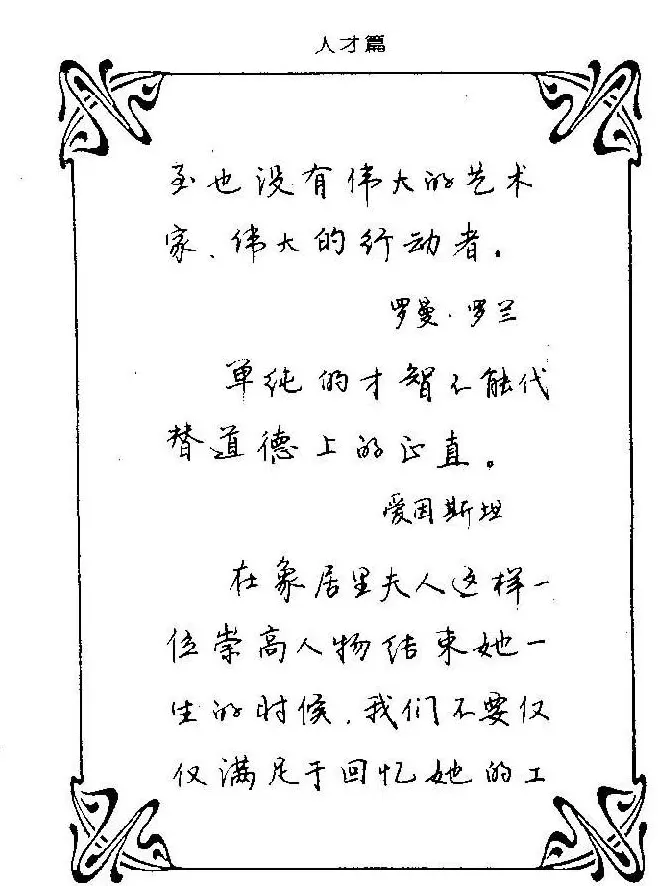 人才篇
至也没有伟大的艺术
家、伟大的行动者。
罗曼·罗兰
单纯的才智不能代
替道德上的正直。
爱因斯坦
在象居里夫人这样一
位崇高人物结束她一
生的时候，我们不要仅
仅满足于回忆她的工